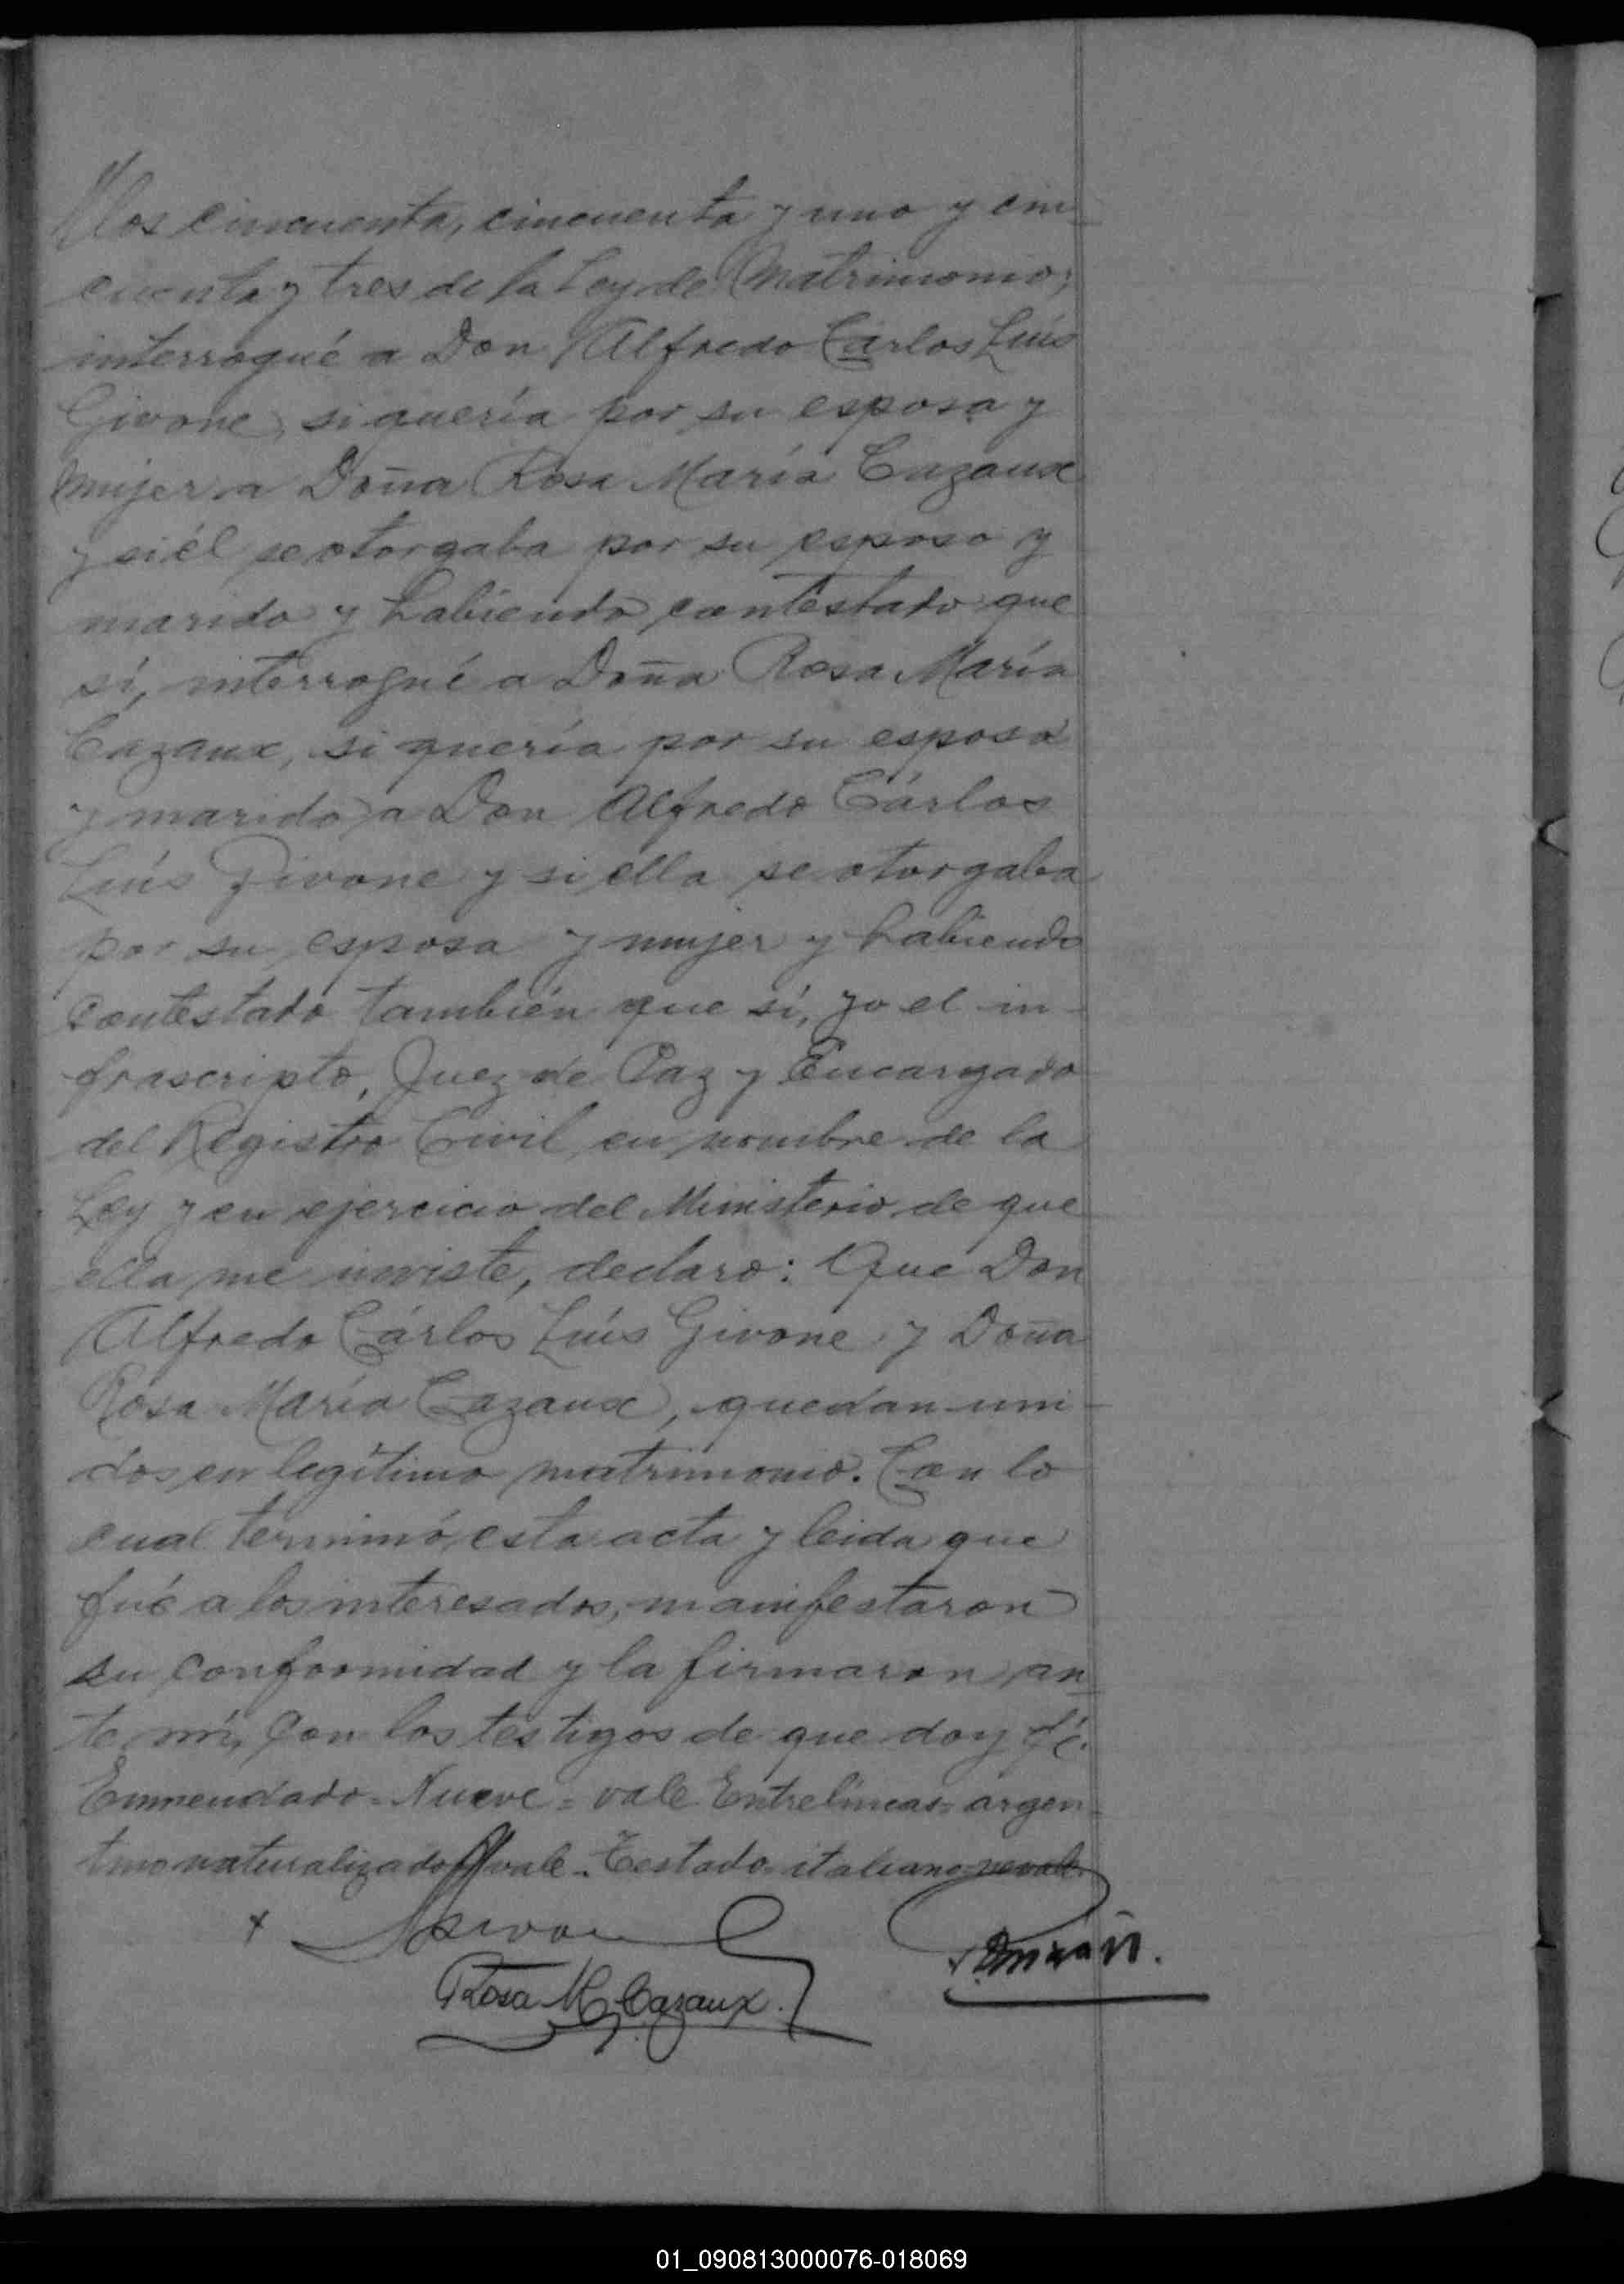 los cincuenta, cincuenta y uno y cin-
cuenta y tres de la Ley de Matrimonio;
interrogué a Don Alfredo Carlos Luís
Givone, si quería por su esposa y
mujer a Doña Rosa María Cazaux
y si él se otorgaba por su esposo y
marido y habiendo contestado que
sí, interrogué a Doña Rosa María
Cazaux, si quería por su esposo
y marido a Don Alfredo Cárlos
Luís Givone y si ella se otorgaba
por su esposa y mujer y habiendo
contestado también que sí, yo el in-
frascripto, Juez de Paz y Encargado
del Registro Civil en nombre de la
Ley y en ejercicio del Ministerio de que
ella me inviste, declaro: Que Don
Alfredo Cárlos Luís Givone y Doña
Rosa María Cazaux, quedan uni-
dos en legítimo matrimonio. Con lo
cual terminó esta acta y leida que
fué a los interesados, manifestaron
su conformidad y la firmaron an-
te mí, con los testigos de que doy fé.
Enmendado = Nueve = vale Entrelíneas = argen-
tino naturalizado vale. Testado italiano no vale
x
Rosa M. Cazaux.
01_090813000076-018069